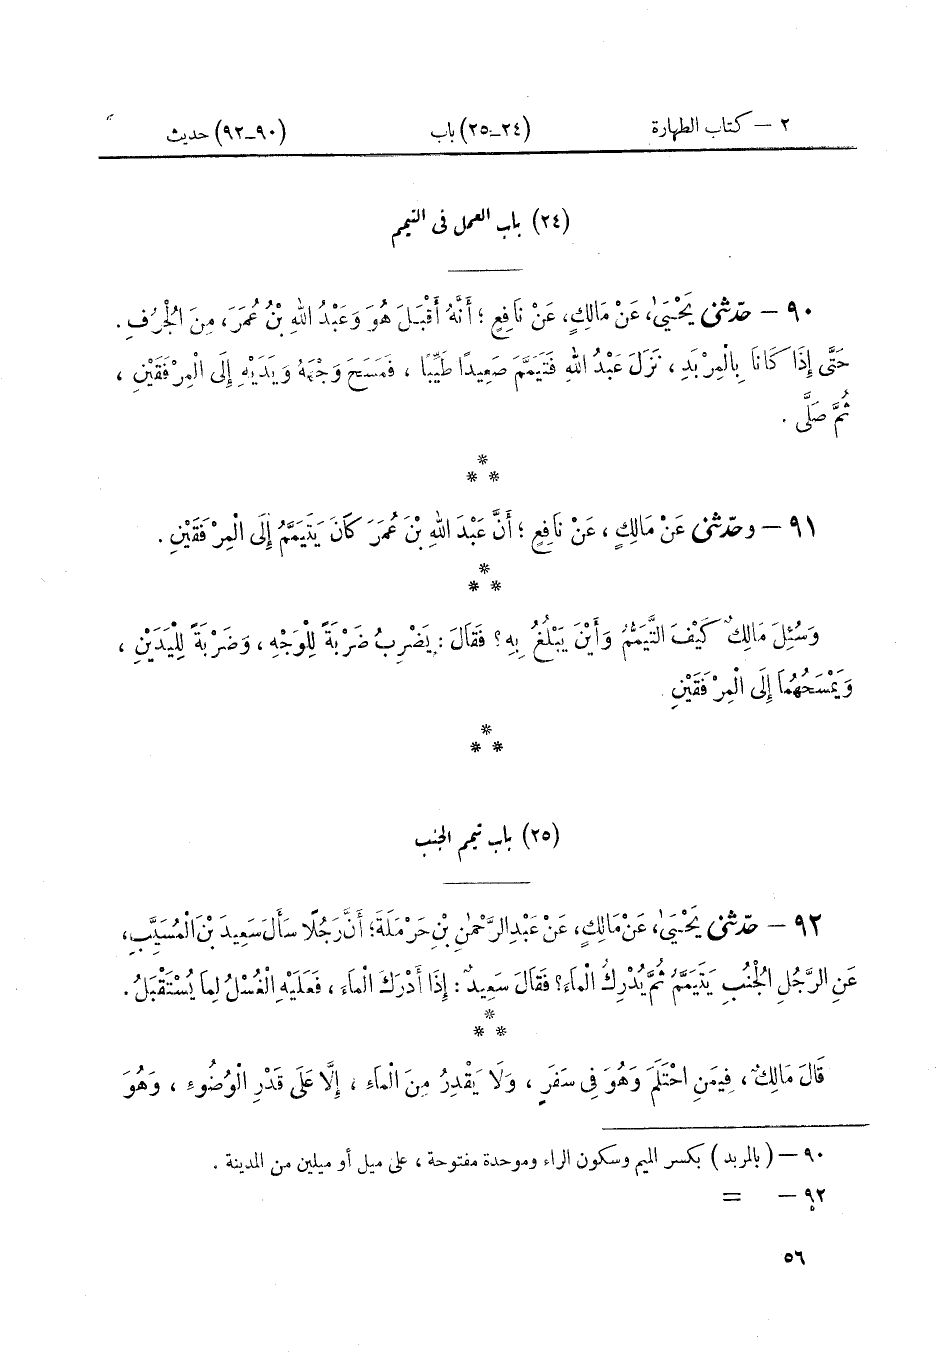 ٢ – كتاب الطهارة (٢٤–٢٥) باب (٩٠–٩٢) حديث
(٢٤) باب العمل فى التيمم
٩٠ – حدّثنى يَحْيَىٰ، عَنْ مَالِكٍ، عَنْ نَافِعٍ ؛ أَنَّهُ أَقْبَلَ هُوَ وَعَبْدُ اللهِ بْنُ عُمَرَ، مِنَ الْجُرُفِ.
حَتَّى إِذَا كَانَا بِالْمِرْبَدِ ، نَزَلَ عَبْدُ اللهِ فَتَيَمَّمَ صَعِيدًا طَيِّبًا ، فَمَسَحَ وَجْهَهُ وَيَدَيْهِ إِلَى الْمِرْفَقَيْنِ ،
ثُمَّ صَلَّى .
*
* *
٩١ – وحدّثنى عَنْ مَالِكٍ ، عَنْ نَافِعٍ ؛ أَنَّ عَبْدَ اللهِ بْنَ عُمَرَ كَانَ يَتَيَمَّمُ إِلَى الْمِرْفَقَيْنِ .
*
* *
وَسُئِلَ مَالِكٌ كَيْفَ التَّيَمُّمُ وَأَيْنَ يَبْلُغُ بِهِ ؟ فَقَالَ : يَضْرِبُ ضَرْبَةً لِلْوَجْهِ ، وَضَرْبَةً لِلْيَدَيْنِ ،
وَيَمْسَحُهُمَا إِلَى الْمِرْفَقَيْنِ .
*
* *
(٢٥) باب تيمم الجنب
٩٢ – حدّثنى يَحْيَىٰ، عَنْ مَالِكٍ، عَنْ عَبْدِ الرَّحْمٰنِ بْنِ حَرْمَلَةَ؛ أَنَّ رَجُلًا سَأَلَ سَعِيدَ بْنَ الْمُسَيَّبِ،
عَنِ الرَّجُلِ الْجُنُبِ يَتَيَمَّمُ ثُمَّ يُدْرِكُ الْمَاءَ؟ فَقَالَ سَعِيدٌ : إِذَا أَدْرَكَ الْمَاءَ ، فَعَلَيْهِ الْغُسْلُ لِمَا يُسْتَقْبَلُ .
*
* *
قَالَ مَالِكٌ ، فِيمَنِ احْتَلَمَ وَهُوَ فِى سَفَرٍ ، وَلَا يَقْدِرُ مِنَ الْمَاءِ ، إِلَّا عَلَى قَدْرِ الْوُضُوءِ ، وَهُوَ
٩٠ – ( بالمربد ) بكسر الميم وسكون الراء وموحدة مفتوحة ، على ميل أو ميلين من المدينة .
٩٢ – =
٥٦